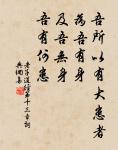 吾所以有大患者
為吾有身
及吾無身
吾有何患
老子道德經第十三章